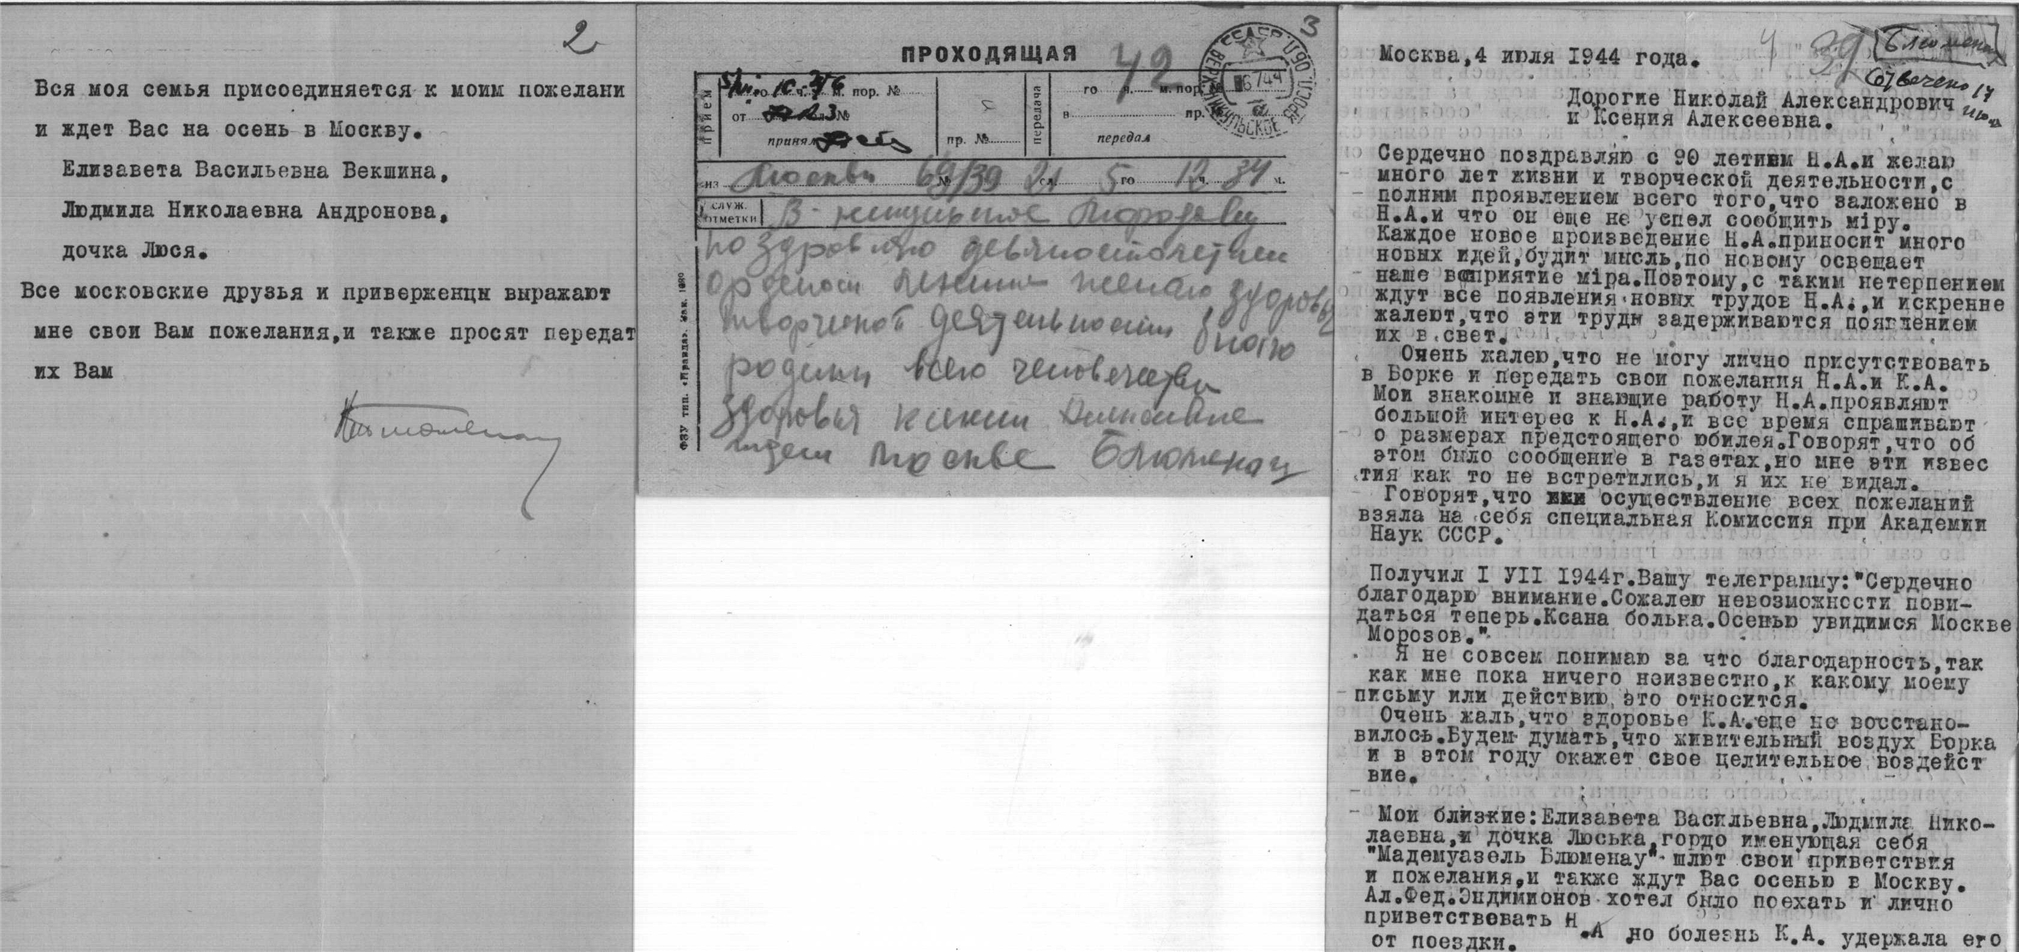 2
Вся моя семья присоединяется к моим пожелани
и ждет Вас на осень в Москву.
Елизавета Васильевна Векшина,
Людмила Николаевна Андронова,
дочка Люся.
Все московские друзья и приверженцы выражают
мне свои Вам пожелания,и также просят передат
их Вам
3
ПРОХОДЯЩАЯ
42
прием
го ч. м. пор. №
от №
принял
пр. №
передача
го ч. м. пор. №
в пр.
передал
из Москвы 69/39 21 сл. 5 го 12 ч. 34 м.
служ.
отметки
В-никульское Морозову
поздравляю девяностолетием
орденом Ленина желаю здоровья
творческой деятельности благо
родины всего человечества
здоровья ксении
ждем Москве Блюменау
ФЗУ тип. «Правда». Зак. 1680
Москва,4 июля I944 года.
39
Блюменау
Отвечено 14
июля
Дорогие Николай Александрович
и Ксения Алексеевна.
Сердечно поздравляю с 90 летием Н.А.и желаю
много лет жизни и творческой деятельности,с
полним проявлением всего того,что заложено в
Н.А.и что он еще не успел сообщить мiру.
Каждое новое произведение Н.А.приносит много
новых идей,будит мысль,по новому освещает
наше восприятие мiра.Поэтому,с таким нетерпением
ждут все появления новых трудов Н.А.,и искренне
жалеют,что эти труды задерживаются появлением
их в свет.
Очень жалею,что не могу лично присутствовать
в Борке и передать свои пожелания Н.А.и К.А.
Мои знакомые и знающие работу Н.А.проявляют
большой интерес к Н.А.,и все время спрашивают
о размерах предстоящего юбилея.Говорят,что об
этом было сообщение в газетах,но мне эти извес
тия как то не встретились,и я их не видал.
Говорят,что осуществление всех пожеланий
взяла на себя специальная Комиссия при Академии
Наук СССР.
Получил I УII I944г.Вашу телеграмму:"Сердечно
благодарю внимание.Сожалею невозможности пови-
даться теперь.Ксана больна.Осенью увидимся Москве
Морозов."
Я не совсем понимаю за что благодарность,так
как мне пока ничего неизвестно,к какому моему
письму или действию это относится.
Очень жаль,что здоровье К.А.еще не восстано-
вилось.Будем думать,что живительный воздух Борка
и в этом году окажет свое целительное воздейст
вие.
Мои близкие:Елизавета Васильевна,Людмила Нико-
лаевна,и дочка Люська,гордо именующая себя
"Мадемуазель Блюменау" шлют свои приветствия
и пожелания,и также ждут Вас осенью в Москву.
Ал.Фед.Эндимионов хотел было поехать и лично
приветствовать Н.А ,но болезнь К.А. удержала его
от поездки.